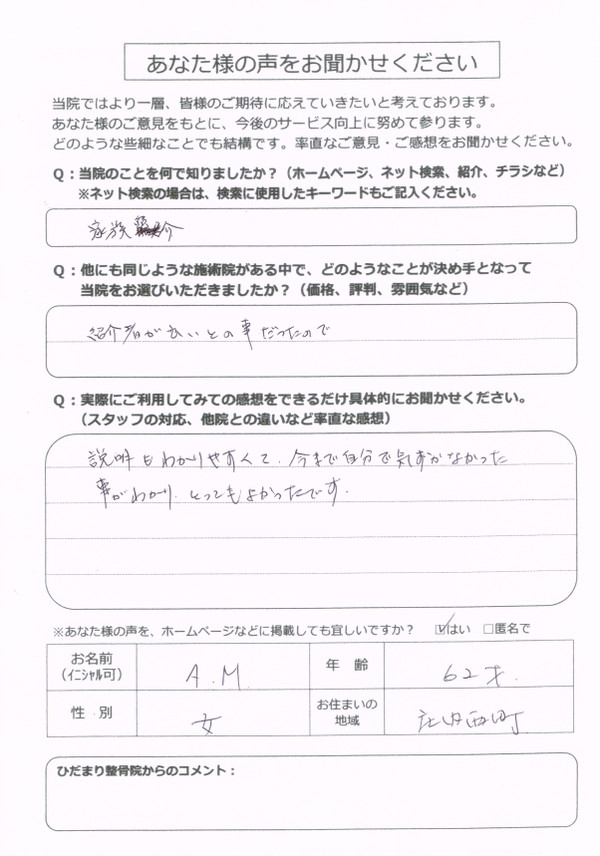 あなた様の声をお聞かせください
当院ではより一層、皆様のご期待に応えていきたいと考えております。
あなた様のご意見をもとに、今後のサービス向上に努めて参ります。
どのような些細なことでも結構です。率直なご意見・ご感想をお聞かせください。
Q：当院のことを何で知りましたか？（ホームページ、ネット検索、紹介、チラシなど）
※ネット検索の場合は、検索に使用したキーワードもご記入ください。
家族 紹介
Q：他にも同じような施術院がある中で、どのようなことが決め手となって
当院をお選びいただきましたか？（価格、評判、雰囲気など）
紹介者が良いとの事だったので
Q：実際にご利用してみての感想をできるだけ具体的にお聞かせください。
（スタッフの対応、他院との違いなど率直な感想）
説明もわかりやすくて、今まで自分で気ずかなかった
事がわかり、とってもよかったです。
※あなた様の声を、ホームページなどに掲載しても宜しいですか？ ☑はい □匿名で
お名前 A.M 年 齢 62才.
（ｲﾆｼｬﾙ可）
性 別 女 お住まいの
地域 庄内西町
ひだまり整骨院からのコメント：